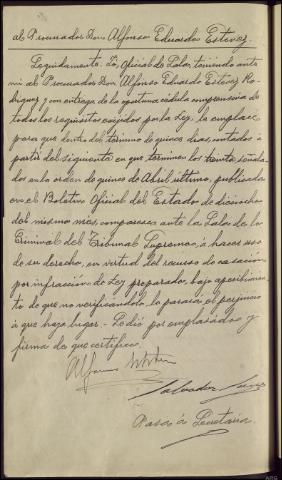 al Procurador Don Alfonso Eduardo Estevez.
Seguidamente. Yo Oficial de Sala, teniendo ante
mi al Procurador Don Alfonso Eduardo Estevez Ro-
driguez y con entrega de la oportuna cédula comprensiva de
todos los requisitos exijidos por la Ley, le emplacé
para que dentro del termino de quince dias, contados á
partir del siguiente en que terminen los treinta señala-
dos en la orden de quince de Abril último, publicada
en el Boletin Oficial del Estado de dieciocho
del mismo mes, comparezca ante la Sala de lo
Criminal del Tribunal Supremo, á hacer uso
de su derecho, en virtud del recurso de casación
por infracción de Ley preparado, bajo apercibimien-
to de que no verificandolo, le parará el perjuicio
á que haya lugar. - Se dió por emplazado y
firma de que certifico.
Alfonso
Salvador
Pasa á Secretaria.